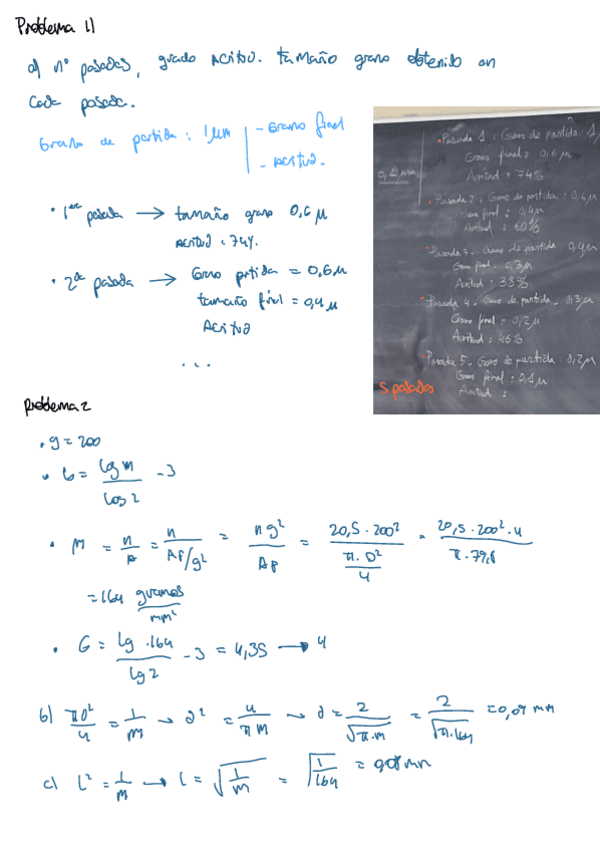 Problema 1)
a) nº pasadas, grado acritud. tamaño grano obtenido en
cada pasada.
Grano de partida: 1μm | - Grano final
- acritud.
• 1era pasada → tamaño grano 0,6 μ
acritud: 74%
• 2da pasada → Grano partida = 0,6μ
tamaño final = 0,4 μ
Acritud
...
• Pasada 1. Grano de partida: 1
Grano final: 0,6 μ
Acritud: 74%
• Pasada 2. Grano de partida: 0,6μ
Grano final: 0,4μ
Acritud: 60%
• Pasada 3. Grano de partida: 0,4μ
Grano final: 0,3μ
Acritud: 38%
• Pasada 4. Grano de partida: 0,3μ
Grano final: 0,2μ
Acritud: 46%
• Pasada 5. Grano de partida: 0,2μ
Grano final: 0,1μ
Acritud:
5 pasadas
problema 2
• g = 200
• G = lg m / log 2 - 3
• M = n/A = n / (Af/g²) = n g² / Ap = 20,5 · 200² / (π · D² / 4) = 20,5 · 200² · 4 / (π · 79,8
= 164 granos / mm²
• G = lg · 164 / lg 2 - 3 = 4,35 → 4
b) πD²/4 = 1/m → d² = 4/πM → d = 2/√π.m = 2/√π.164 = 0,09 mm
c) L² = 1/M → L = √1/m = √1/164 = 0,08 mm